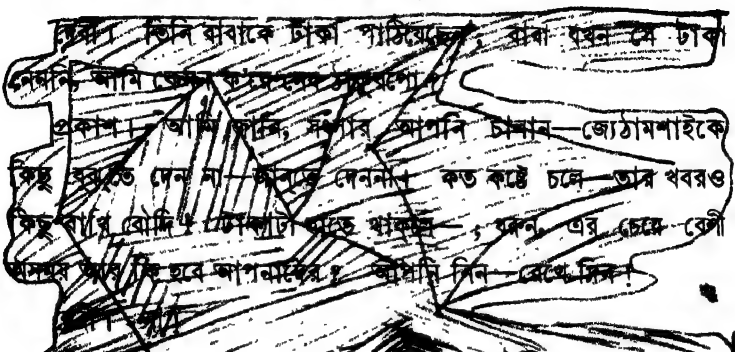 তিনি বাবাকে টাকা পাঠিয়েছেন, বাবা যখন সে টাকা
নেননি, আমি কেমন ক'রে নেব ঠাকুরপো ?
প্রকাশ। আমি জানি, সংসার আপনি চালান—জ্যেঠামশাইকে
কিছু বুঝতে দেন না—জানতে দেননা। কত কষ্টে চলে—তার খবরও
কিছু রাখি বৌদি। টাকাটা হাতে থাকলে—, ধরুন, এর চেয়ে বেশী
অসময় আর কি হবে আপনাদের ? আপনি নিন—রেখে দিন !